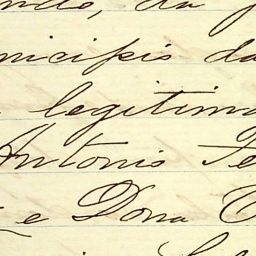 ndo, da p
nicipio da
legitimo
Antonio Fe
e Dona